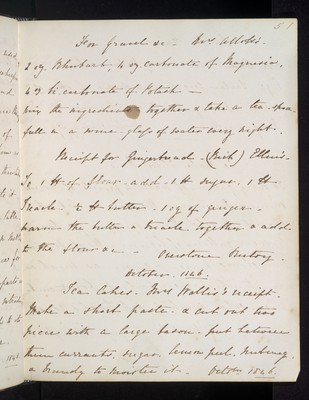 51
For gravel &c - Mrs Allott's.
2 oz. Rhubarb, 4 oz carbonate of Magnesia.
4 ʒ bi carbonate of Potash —
mix the ingredients together & take a tea spoon
full in a wine glass of water every night.
Receipt for Gingerbread. (Rich) Ellen's.
To 1 lb of flour add 1 lb sugar. 1 lb
Treacle. ½ lb butter. 1 oz of ginger.
warm the butter & treacle together & add
to the flour &c — Overstone Rectory.
October 1846.
Tea Cakes. Mrs Wallis's receipt.
Make a short paste. & cut out two
pieces with a large bason. put between
them currants, sugar, lemon peel, nutmeg,
& brandy to moisten it. October 1846.